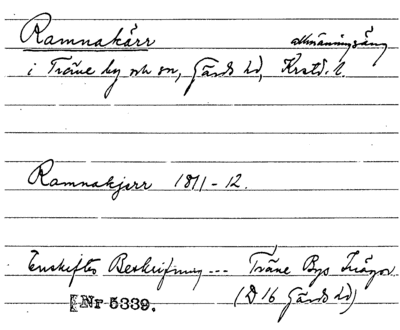 Ramnakärr allmänningsäng
i Träne by och sn, Gärds hd, Krstd. l.
Ramnakjerr 1811-12.
Enskiftes Beskrifning --- Träne Bys Inägor
Nr 5339. (D 16 Gärds hd)